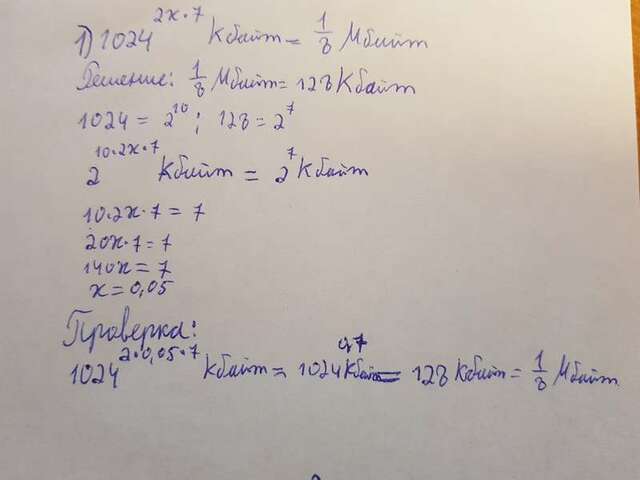 1) 1024^2x·7 Кбайт = 1/8 Мбайт
Решение: 1/8 Мбайт = 128 Кбайт
1024 = 2^10; 128 = 2^7
2^10·2x·7 Кбайт = 2^7 Кбайт
10·2x·7 = 7
20x·7 = 7
140x = 7
x = 0,05
Проверка:
1024^2·0,05·7 Кбайт = 1024^0,7 Кбайт = 128 Кбайт = 1/8 Мбайт